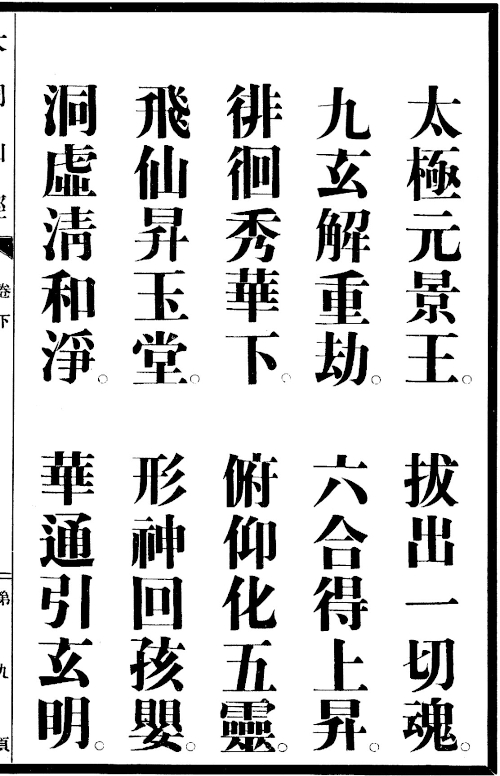 太極元景王。拔出一切魂。
九玄解重劫。六合得上昇。
徘徊秀華下。俯仰化五靈。
飛仙昇玉堂。形神回孩嬰。
洞虛淸和淨。華通引玄明。
卷下
第九頁